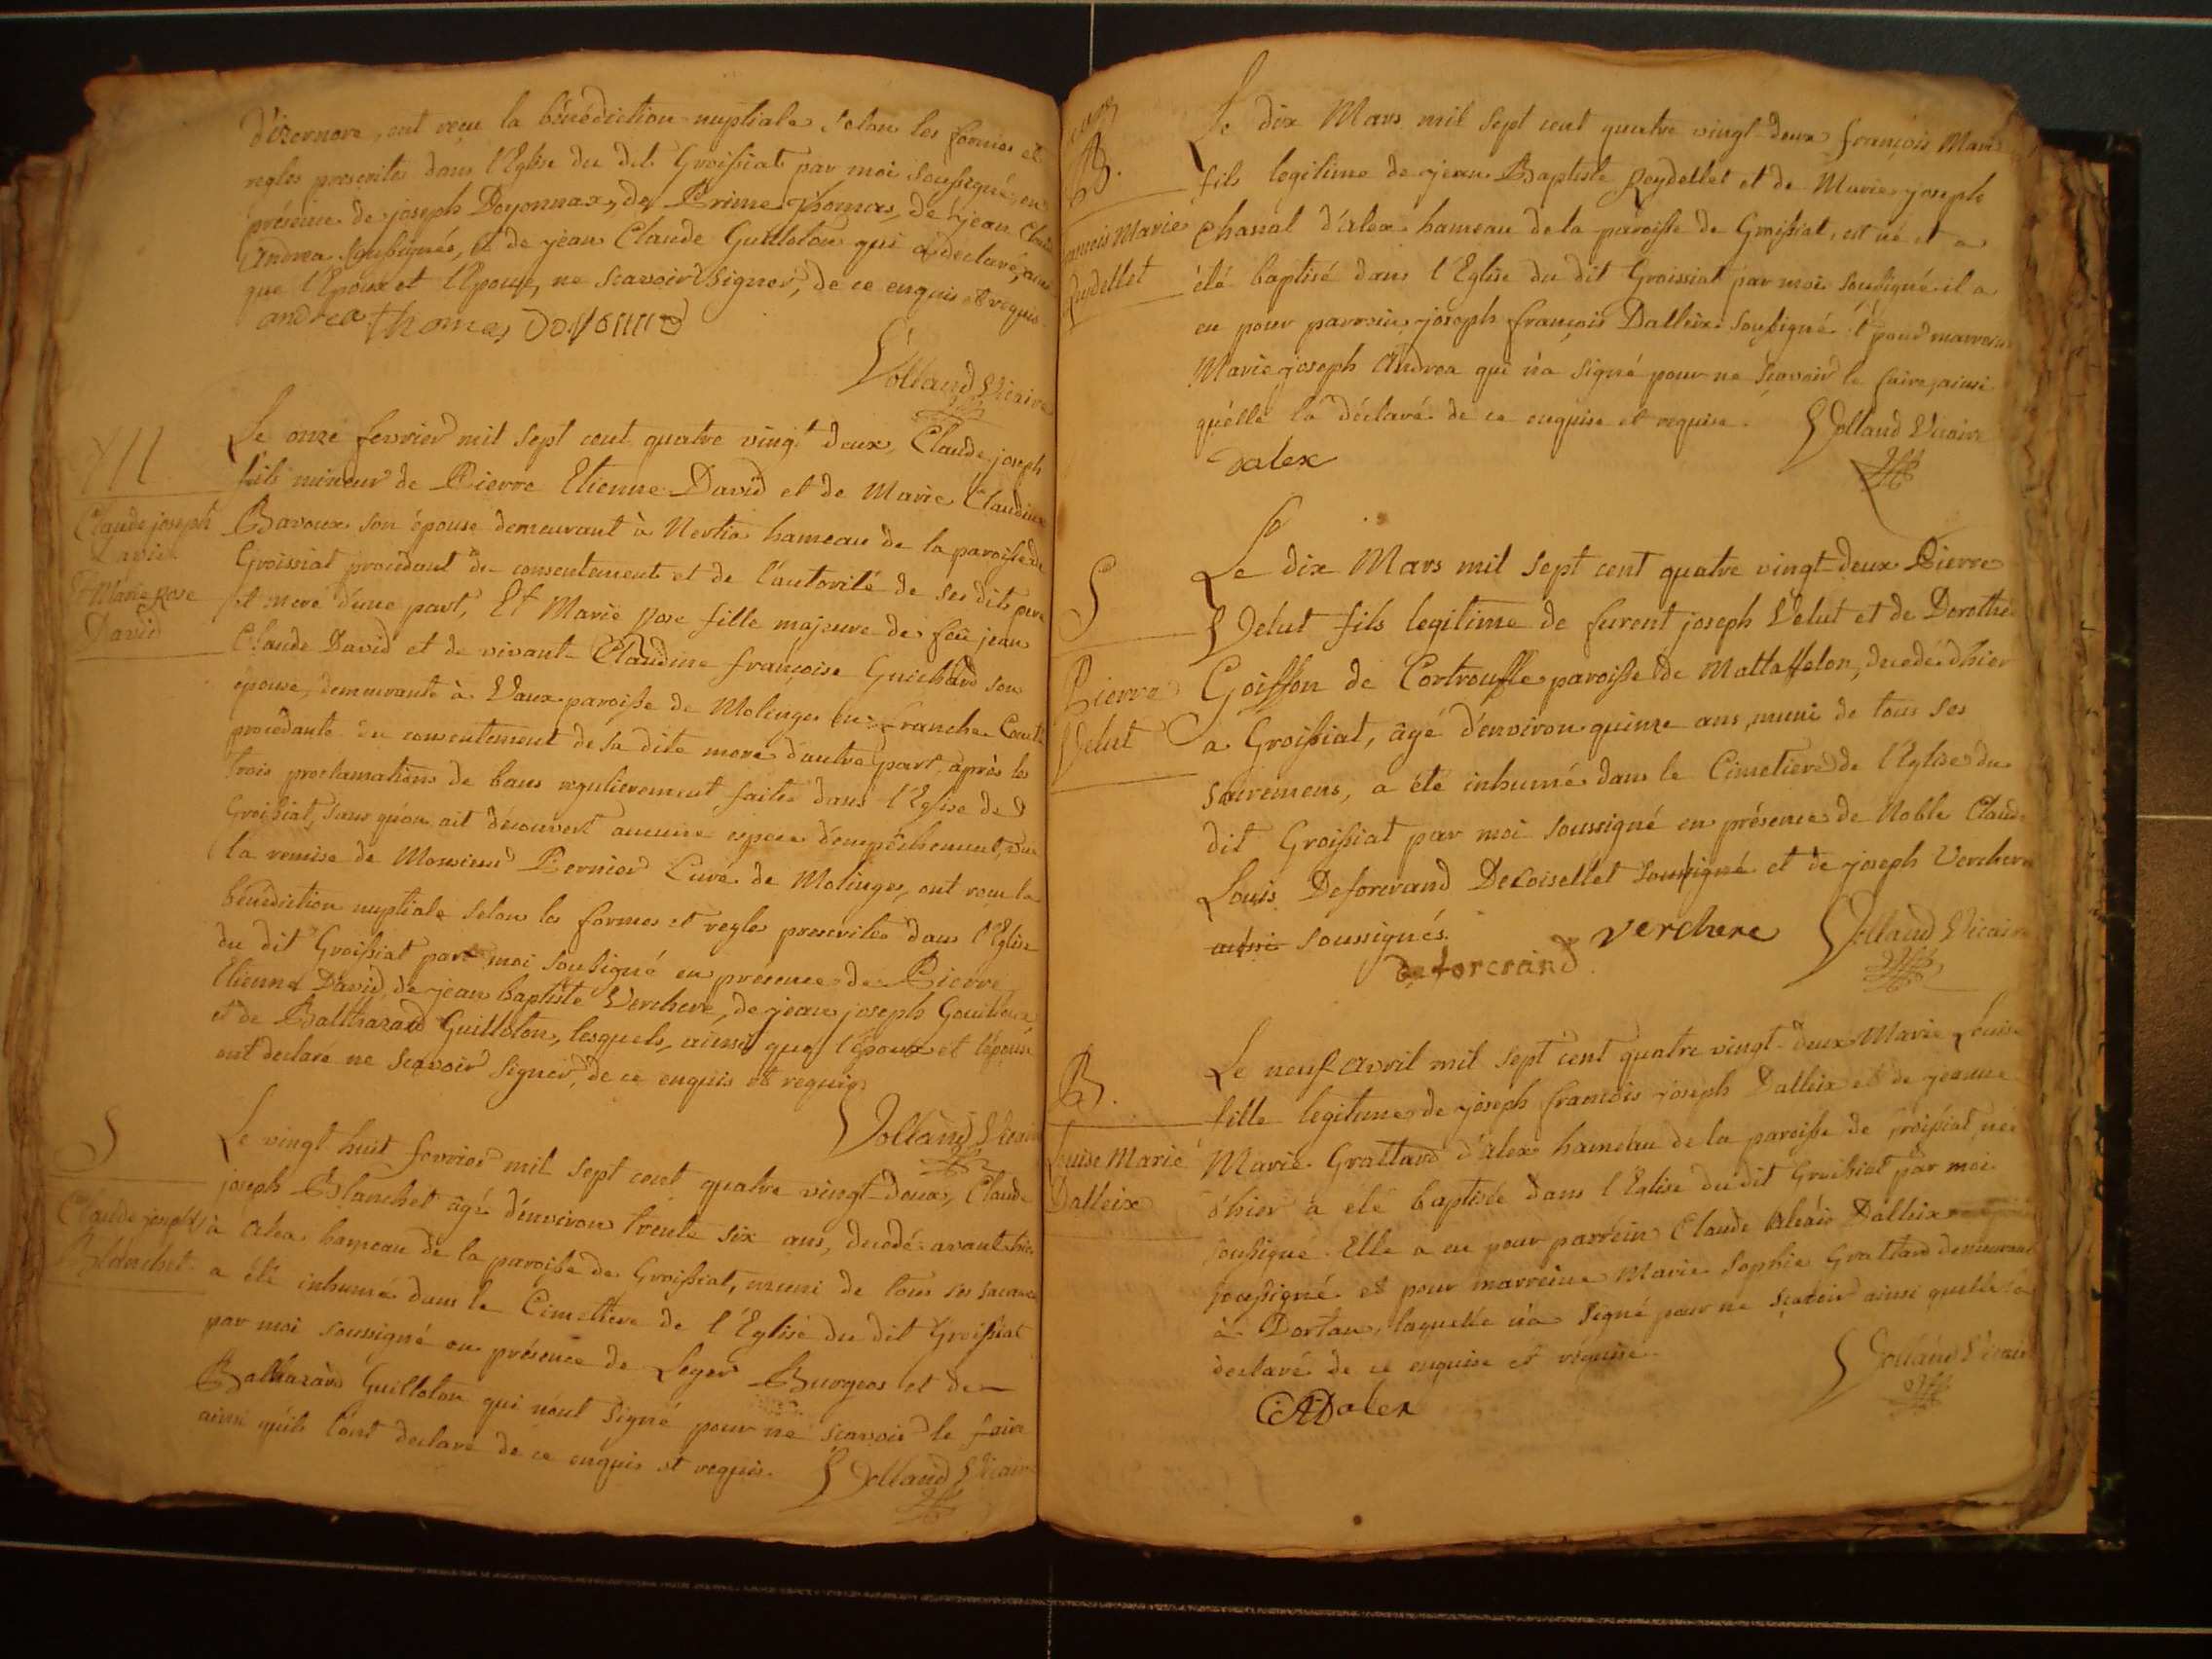 d'izernore, ont reçu la bénédiction nuptiale selon les formes et
regles prescrites dans l'Eglise du dit Groissiat par moi soussigné, en
présence de joseph Doyonnax, de Prime Thomas, de jean Claude
Andrea soussignés, et de jean Claude Guilloton qui a déclaré, ainsi
que l'Epoux et l'Epouse, ne scavoir signer, de ce enquis et requis
andrea thomas
Volland Vicaire
M
Claude joseph
David
et Marie Rose
David
Le onze fevrier mil sept cent quatre vingt deux, Claude joseph
fils mineur de Pierre Etienne David et de Marie Claudine
Bavoux son épouse demeurant à Nertia hameau de la paroisse de
Groissiat procédant du consentement et de l'autorité de ses dits pere
et mere d'une part, Et Marie Rose fille majeure de feu jean
Claude David et de vivante Claudine françoise Guichard son
épouse, demeurante à Vaux paroisse de Molinges en franche Comté
procédante du consentement de sa dite mere d'autre part, après les
trois proclamations de bans regulierement faites dans l'Eglise de
Groissiat, sans qu'on ait découvert aucune espece d'empêchement, vue
la remise de Monsieur Pernier Curé de Molinges, ont reçu la
bénédiction nuptiale selon les formes et regles prescrites dans l'Eglise
du dit Groissiat par moi soussigné en présence de Pierre
Etienne David, de jean baptiste Verchere, de jean joseph
et de Balthazard Guilloton, lesquels, ainsi que l'époux et l'épouse
ont declaré ne scavoir signer, de ce enquis et requis.
Volland Vicaire
S
Claude joseph
Blanchet
Le vingt huit fevrier mil sept cent quatre vingt-deux, Claude
joseph Blanchet âgé d'environ trente six ans, decédé avant hier
à Alex hameau de la paroisse de Groissiat, muni de tous ses sacremens
a été inhumé dans le Cimetiere de l'Eglise du dit Groissiat
par moi soussigné en présence de Leger Burgeos et de
Balthazard Guilloton qui n'ont signé pour ne scavoir le faire
ainsi qu'ils l'ont declaré de ce enquis et requis.
Volland Vicaire
B.
françois Marie
Reydellet
Le dix Mars mil sept cent quatre vingt-deux françois Marie
fils legitime de jean Baptiste Reydellet et de Marie joseph
Chanal d'alex hameau de la paroisse de Groissiat, est né et a
été baptisé dans l'Eglise du dit Groissiat par moi soussigné il a
eu pour parrain joseph françois Dalleix soussigné et pour marreine
Marie joseph Andrea qui n'a signé pour ne scavoir le faire, ainsi
qu'elle l'a déclaré de ce enquise et requise.
Volland Vicaire
Dalex
S
Pierre
Velut
Le dix Mars mil sept cent quatre vingt-deux Pierre
Velut fils legitime de furent joseph Velut et de Dorothée
Goiffon de Cortrouffle paroisse de Mattaffelon, decedé d'hier
a Groissiat, âgé d'environ quinze ans, muni de tous ses
sacremens, a été inhumé dans le Cimetiere de l'Eglise du
dit Groissiat par moi soussigné en présence de Noble Claude
Louis Deforcrand Decoisellet soussigné et de joseph Verchere
aussi soussignés.
deforcrand
verchere
Volland Vicaire
B.
Louise Marie
Dalleix
Le neuf avril mil sept cent quatre vingt-deux Marie Louise
fille legitime de joseph françois joseph Dalleix et de jeanne
Marie Grattard d'Alex hameau de la paroisse de Groissiat, née
d'hier a été baptisée dans l'Eglise du dit Groissiat par moi
soussigné. Elle a eu pour parrein Claude Alexis Dalleix
soussigné et pour marreine Marie Sophie Grattard demeurant
à Dortan, laquelle n'a signé pour ne scavoir ainsi qu'elle l'a
declaré de ce enquise et requise.
Volland Vicaire
CADalex